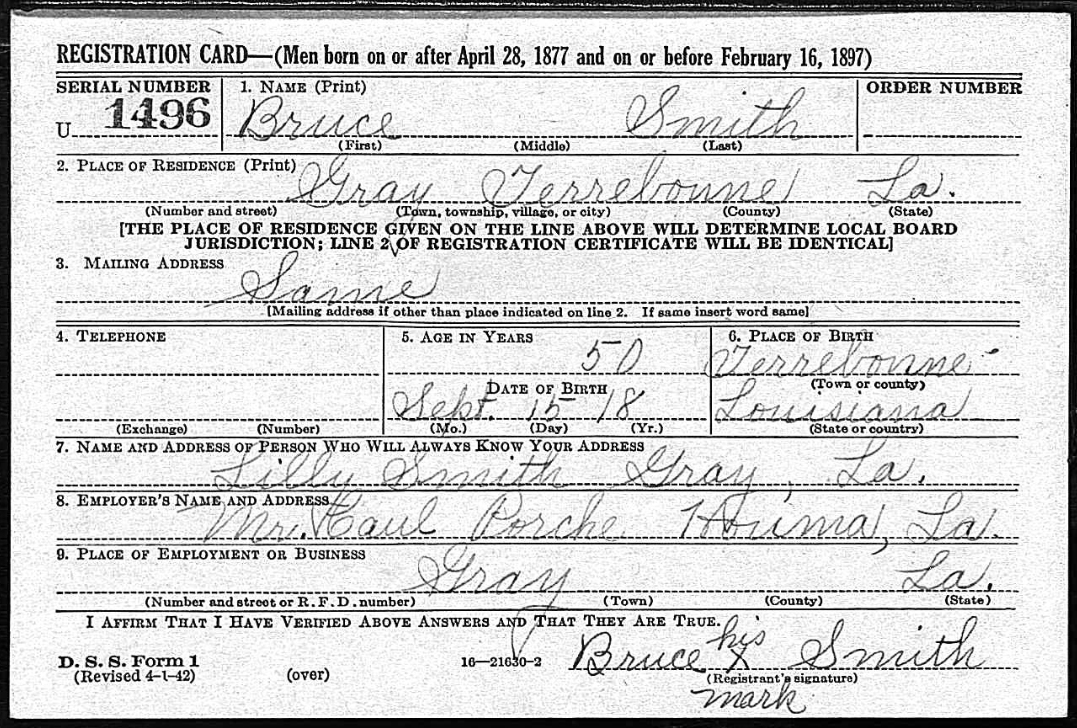 REGISTRATION CARD—(Men born on or after April 28, 1877 and on or before February 16, 1897)
SERIAL NUMBER 1. NAME (Print) ORDER NUMBER
U 1496 Bruce Smith
(First) (Middle) (Last)
2. PLACE OF RESIDENCE (Print)
Gray Terrebonne La.
(Number and street) (Town, township, village, or city) (County) (State)
[THE PLACE OF RESIDENCE GIVEN ON THE LINE ABOVE WILL DETERMINE LOCAL BOARD
JURISDICTION; LINE 2 OF REGISTRATION CERTIFICATE WILL BE IDENTICAL]
3. MAILING ADDRESS
Same
[Mailing address if other than place indicated on line 2. If same insert word same]
4. TELEPHONE 5. AGE IN YEARS 6. PLACE OF BIRTH
50 Terrebonne
DATE OF BIRTH (Town or county)
Sept. 15 18 Louisiana
(Exchange) (Number) (Mo.) (Day) (Yr.) (State or country)
7. NAME AND ADDRESS OF PERSON WHO WILL ALWAYS KNOW YOUR ADDRESS
Lilly Smith Gray, La.
8. EMPLOYER'S NAME AND ADDRESS
Mr. Porche Houma, La.
9. PLACE OF EMPLOYMENT OR BUSINESS
Gray La.
(Number and street or R. F. D. number) (Town) (County) (State)
I AFFIRM THAT I HAVE VERIFIED ABOVE ANSWERS AND THAT THEY ARE TRUE.
his
D. S. S. Form 1 16—21630-2 Bruce X Smith
(Revised 4-1-42) (over) (Registrant's signature)
mark